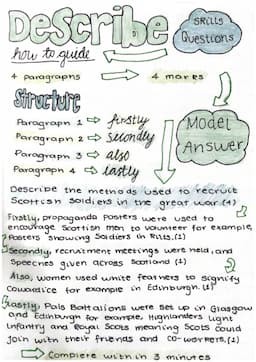 Describe
SKILLS
Questions
how to guide
4 paragraphs → 4 marks
Structure
Paragraph 1 ⇒ firstly
Paragraph 2 ⇒ secondly
Paragraph 3 ⇒ also
Paragraph 4 ⇒ lastly
Model
Answer
Describe the methods used to recruit
Scottish soldiers in the great war.(4)
Firstly, propaganda posters were used to
encourage Scottish men to volunteer for example,
posters showing soldiers in kilts.(1)
Secondly, recruitment meetings were held, and
speeches given across Scotland (1)
Also, women used white feathers to signify
cowardice for example in Edinburgh.(1)
Lastly, Pals Battalions were set up in Glasgow
and Edinburgh for example, Highlanders light
infantry and Royal Scots meaning Scots could
join with their friends and co-workers.(1)
Complete within 3 minutes